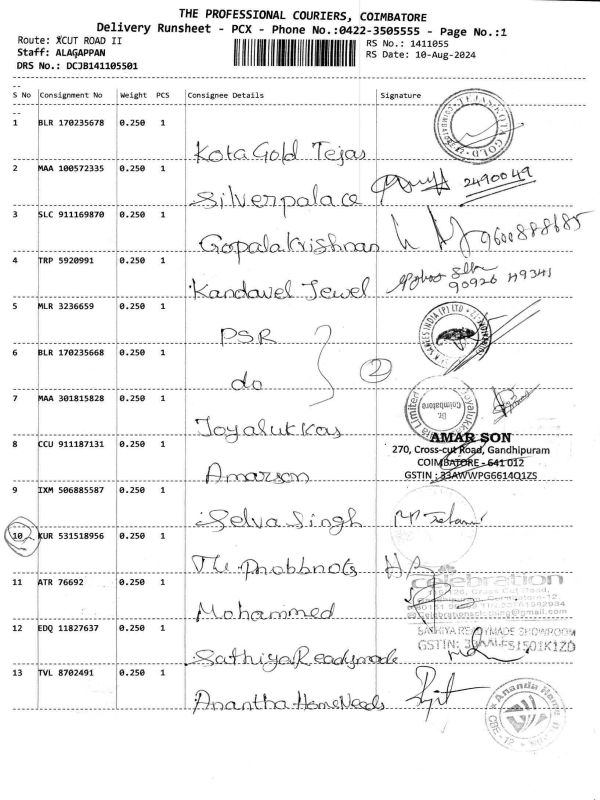 THE PROFESSIONAL COURIERS, COIMBATORE
Delivery Runsheet - PCX - Phone No.:0422-3505555 - Page No.:1
Route: XCUT ROAD II
RS No.: 1411055
Staff: ALAGAPPAN
RS Date: 10-Aug-2024
DRS No.: DCJB141105501
S No Consignment No Weight PCS Consignee Details Signature
1 BLR 170235678 0.250 1 Kota Gold Tejas
2 MAA 100572335 0.250 1 Silverpalace 2490049
3 SLC 911169870 0.250 1 Gopalakrishnan 9600888685
4 TRP 5920991 0.250 1 Kandavel Jewel 90926 49341
5 MLR 3236659 0.250 1 PSR
6 BLR 170235668 0.250 1 do 2
7 MAA 301815828 0.250 1 Joyalukkas
Coimbatore
8 CCU 911187131 0.250 1 Amarson
AMAR SON
270, Cross-cut Road, Gandhipuram
COIMBATORE - 641 012
GSTIN : 33AWWPG6614Q1ZS
9 IXM 506885587 0.250 1 Selva Singh
10 KUR 531518956 0.250 1 The Phobbnots
11 ATR 76692 0.250 1 Mohammed
celebration
12 EDQ 11827637 0.250 1 Sathiya Readymade
SATHIYA READYMADE SHOWROOM
13 TVL 8702491 0.250 1 Anantha Home Needs
CBE - 12